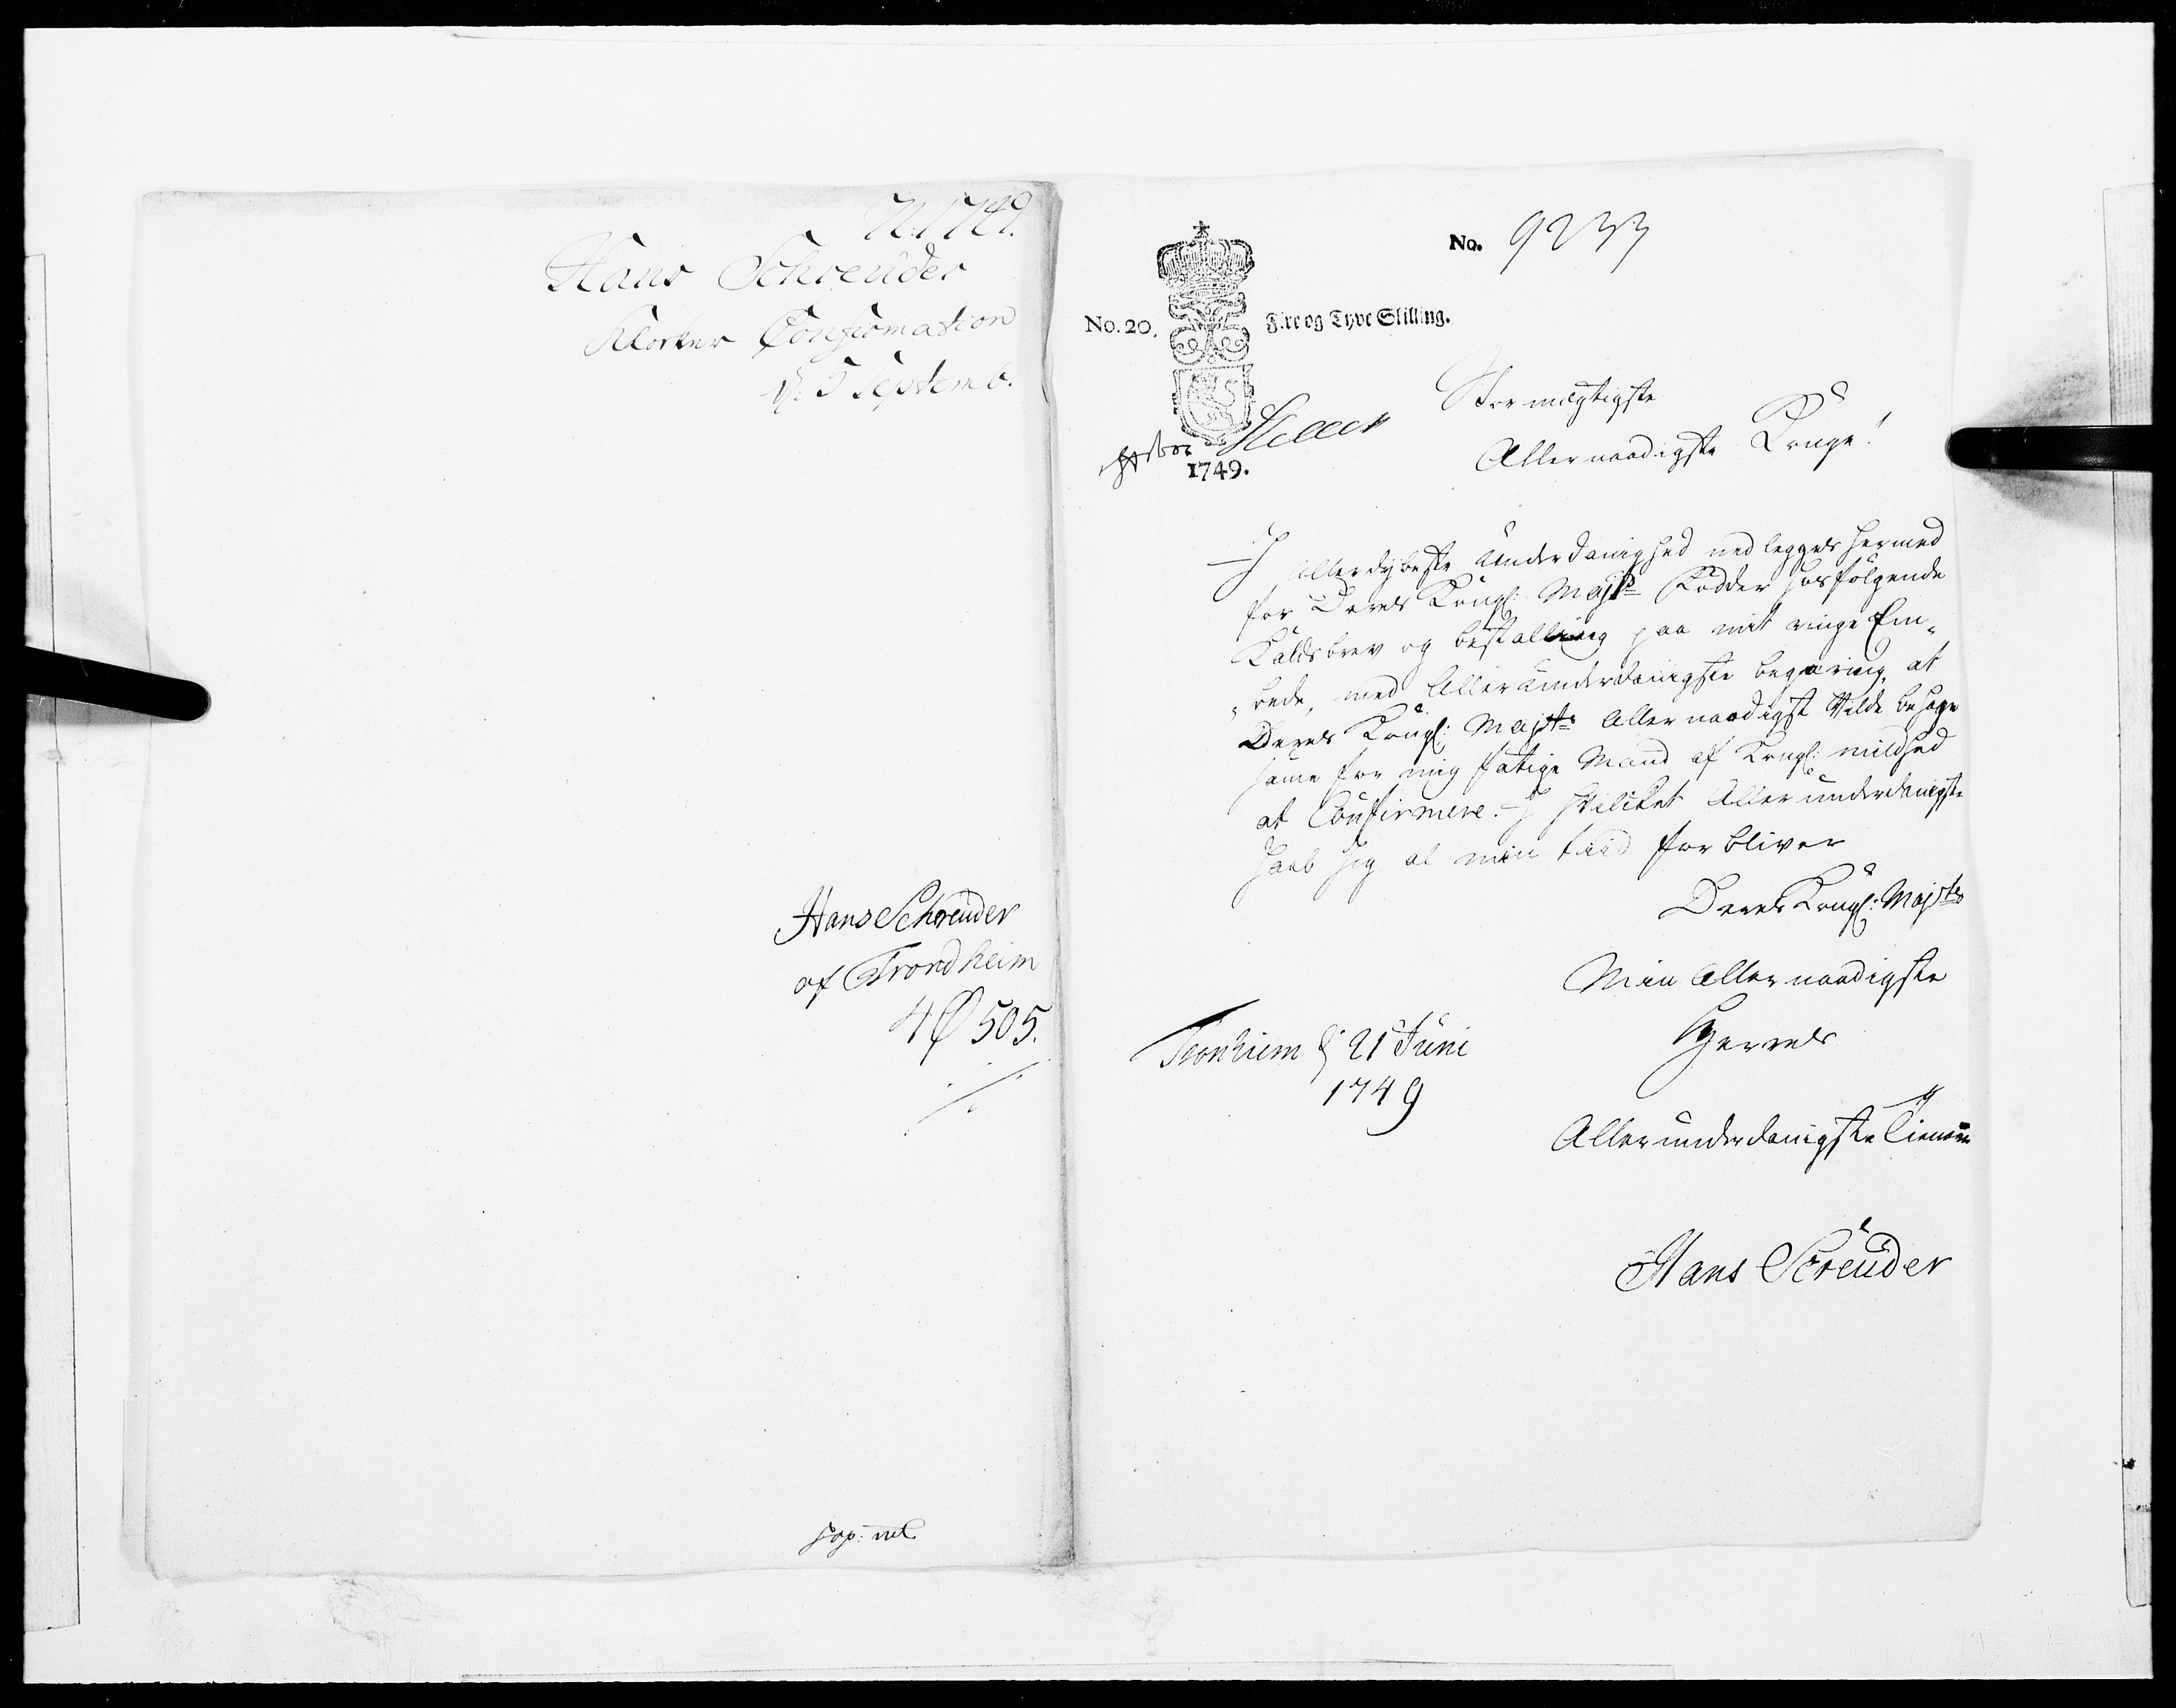 N. 1749.
Hans Schreüder
Klocker Confirmation
d. 5 Septemb.
Hans Schreüder
af Trondheim
505.
Cop: nell
No. 9233
No. 20. Fire og Tyve Skilling.
1749.
Stormægtigste
Allernaadigste Konge!
I Allerdybeste Underdanighed nedlegges hermed
for Deres Kongl: Majts Fødder hosfølgende
Kaldsbrev og bestalling paa mit ringe Em-
bede, med Allerunderdanigste begæring, at
Deres Kongl: Majts Allernaadigst Vilde behage
same for mig fatige Mand af Kongl: mildhed
at Confirmere. I hvilcket Allerunderdanigste
haab jeg al min tiid forbliver
Deres Kongl: Majts
Min Allernaadigste
Herres
Tronhiem d 21 Juni
1749
Allerunderdanigste Tiener
Hans Screüder